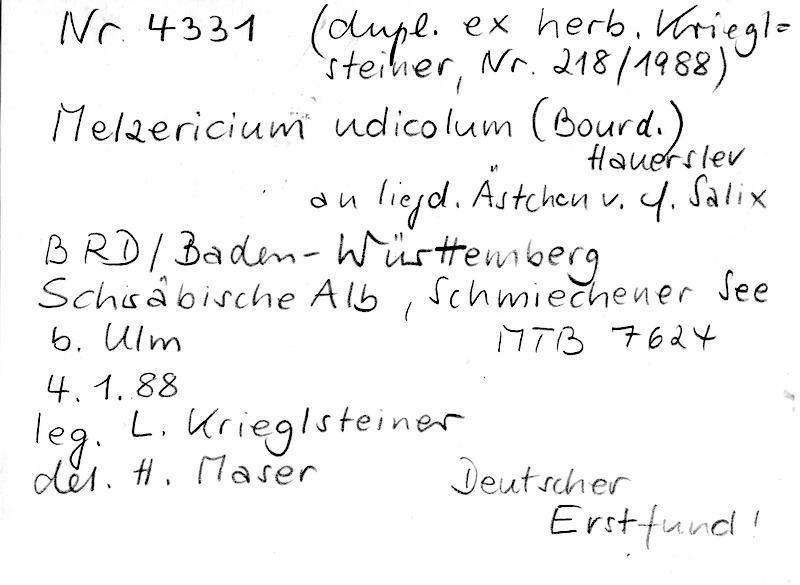 Nr. 4331 (dupl. ex herb. Kriegl=
steiner, Nr. 218/1988)
Melzericium udicolum (Bourd.)
Hauerslev
an liegd. Ästchen v. cf. Salix
BRD/Baden-Württemberg
Schwäbische Alb, Schmiechener See
b. Ulm MTB 7624
4.1.88
leg. L. Krieglsteiner
det. H. Maser Deutscher
Erstfund!